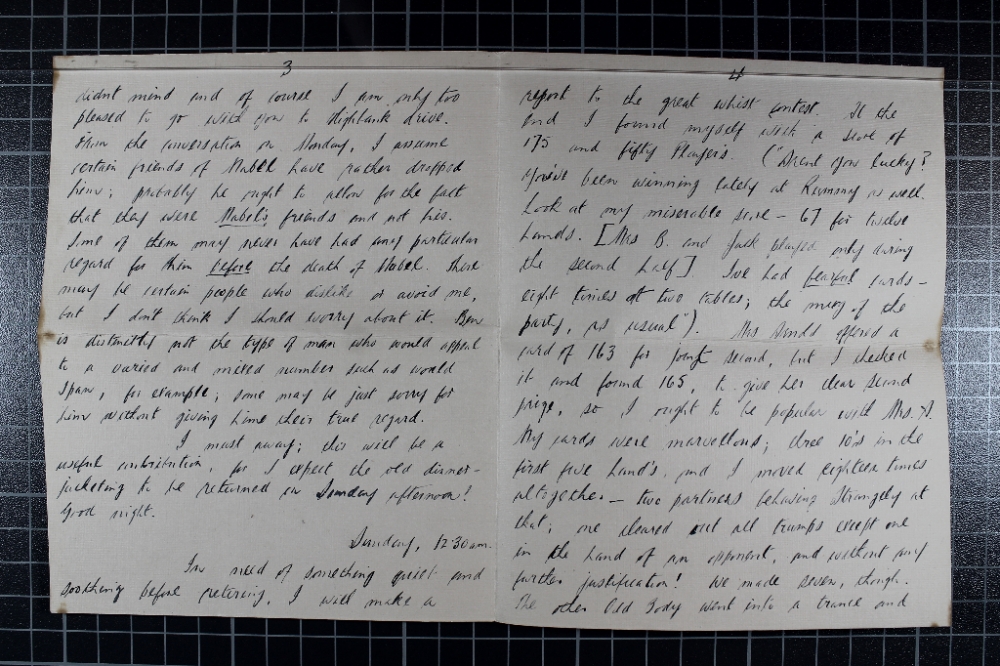 3
didn't mind and of course I am only too
pleased to go with you to Highbank drive.
From the conversation on Monday, I assume
certain friends of Mabel have rather dropped
him; probably he ought to allow for the fact
that they were Mabel's friends and not his.
Some of them may never have had any particular
regard for him before the death of Mabel. There
may be certain people who dislike or avoid me,
but I don't think I should worry about it. Ben
is distinctly not the type of man who would appeal
to a varied and mixed number such as would
Span, for example; some may be just sorry for
him without giving him their true regard.
I must away; this will be a
useful contribution, for I expect the old dinner-
jacketing to be returned on Sunday afternoon!
Good night.
Sunday, 12.30 am.
In need of something quiet and
soothing before retiring, I will make a
4
report to the great whist contest. At the
end I found myself with a score of
175 and fifty players. ("Aren't you lucky?
You've been winning lately at Ramsay as well.
Look at my miserable score - 67 for twelve
hands. [Mrs B. and Jack played only during
the second half] I've had fearful cards -
eight times at two tables; the mug of the
party, as usual"). Mrs offered a
card of 163 for joint second, but I checked
it and found 165, to give her clear second
prize, so I ought to be popular with Mrs. A.
My cards were marvellous; three 10's in the
first five hands, and I moved eighteen times
altogether - two partners behaving strangely at
that; one cleared out all trumps except one
in the hand of an opponent, and without any
further justification! We made seven, though.
The other Old Body went into a trance and